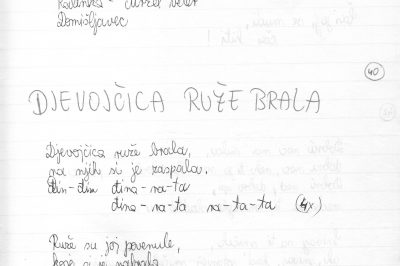 Domišljavec
40
DJEVOJČICA RUŽE BRALA
Djevojčica ruže brala,
na njih si je zaspala.
din-din dina-na-ta
dina-na-ta na-ta-ta (4x)
Ruže su joj povenule,
koje si je nabrala